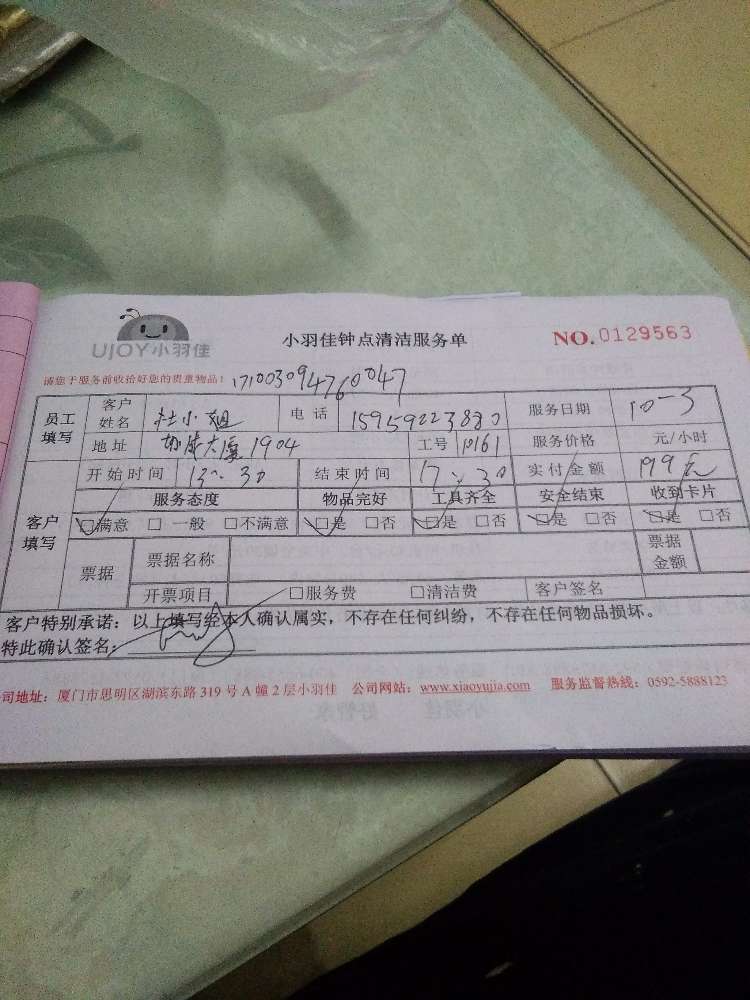 UJOY小羽佳
小羽佳钟点清洁服务单
NO.0129563
请您于服务前收拾好您的贵重物品!
171003094760047
员工填写 客户姓名 杜小姐 电话 15959223880 服务日期 10-3
地址 大厦1904 工号 10161 服务价格 元/小时
客户填写 开始时间 13:30 结束时间 17:30 实付金额 199元
服务态度 物品完好 工具齐全 安全结束 收到卡片
☑满意 □一般 □不满意 ☑是 □否 ☑是 □否 ☑是 □否 ☑是 □否
票据 票据名称 票据金额
开票项目 □服务费 □清洁费 客户签名
客户特别承诺:以上填写经本人确认属实,不存在任何纠纷,不存在任何物品损坏。
特此确认签名:
司地址:厦门市思明区湖滨东路319号A幢2层小羽佳 公司网站:www.xiaoyujia.com 服务监督热线:0592-5888123